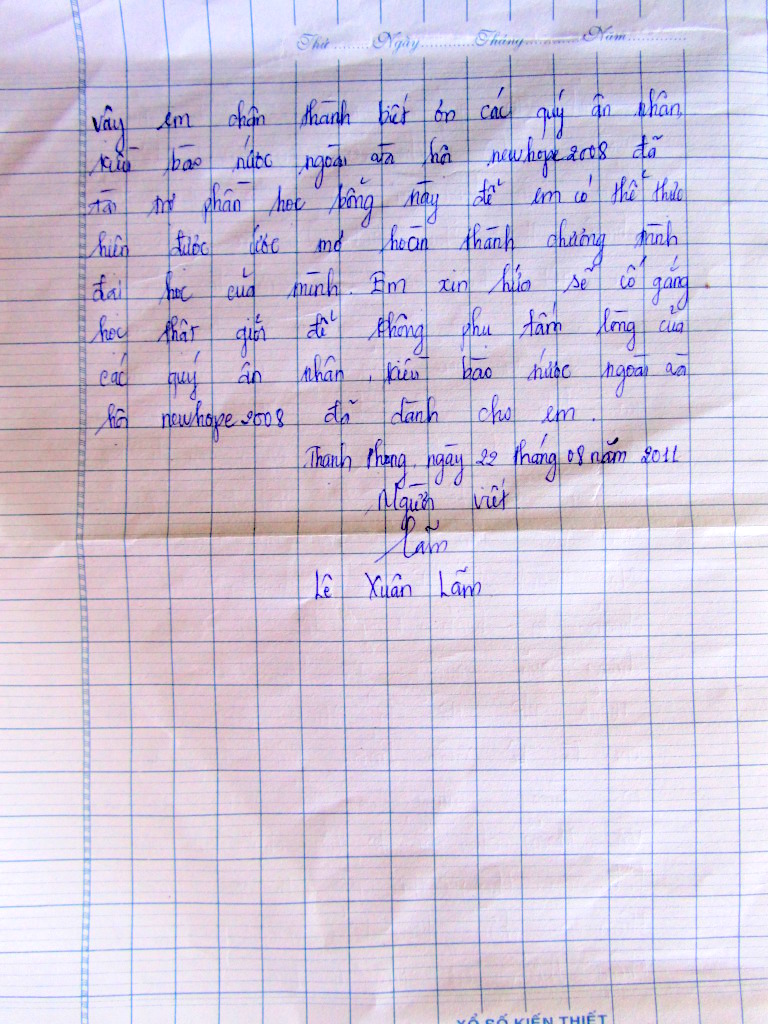 Thứ ........Ngày............Tháng............Năm............
Vậy em chân thành biết ơn các quý ân nhân,
kiều bào nước ngoài và hội newhope2008 đã
tài trợ phần học bổng này để em có thể thực
hiện được ước mơ hoàn thành chương trình
đại học của mình. Em xin hứa sẽ cố gắng
học thật giỏi để không phụ tấm lòng của
các quý ân nhân, kiều bào nước ngoài và
hội newhope2008 đã dành cho em.
Thanh Phong, ngày 22 tháng 08 năm 2011
Người viết
Lãm
Lê Xuân Lãm
XỔ SỐ KIẾN THIẾT